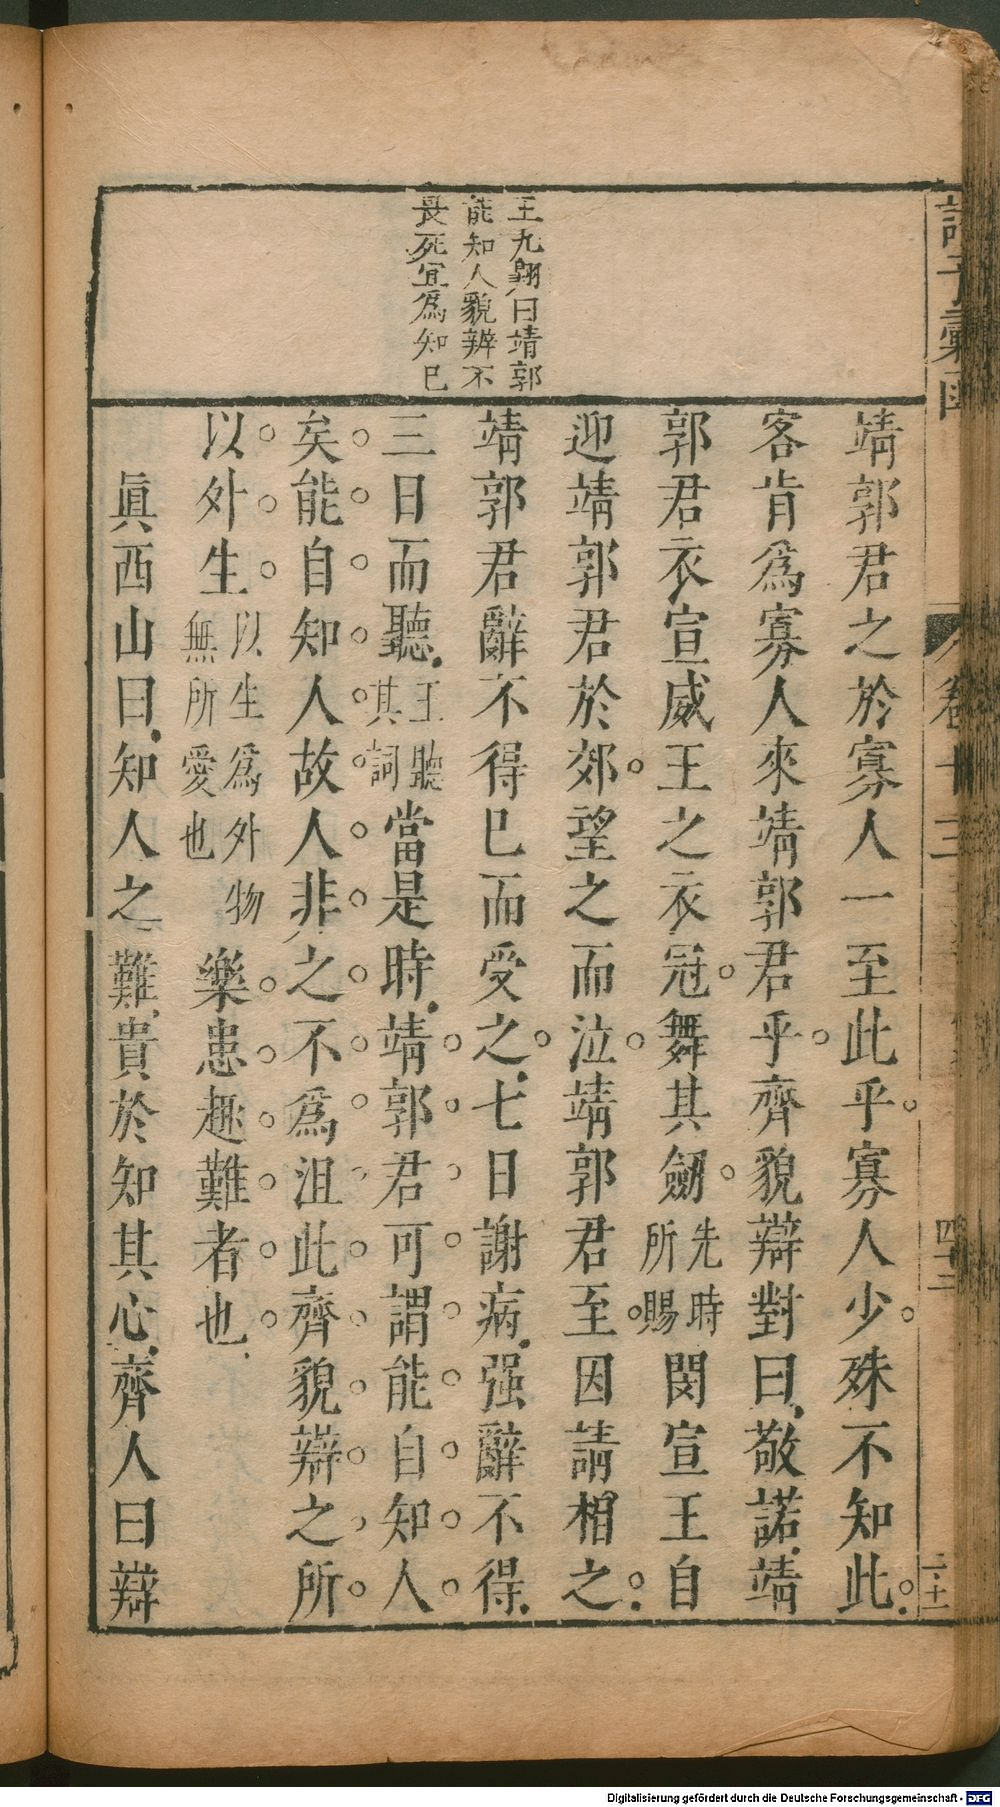 王九翺曰靖郭
能知人貌辨不
畏死宜爲知已
靖郭君之於寡人一至此乎寡人少殊不知此
客肯爲寡人來靖郭君乎齊貌辯對曰敬諾靖
郭君衣宣威王之衣冠舞其劒先時所賜閔宣王自
迎靖郭君於郊望之而泣靖郭君至因請相之
靖郭君辭不得已而受之七日謝病强辭不得
三日而聽王聽其詞當是時靖郭君可謂能自知人
矣能自知人故人非之不爲沮此齊貌辯之所
以外生以生爲外物無所愛也樂患趣難者也
眞西山曰知人之難貴於知其心齊人曰辯
卷十三
四十二
Digitalisierung gefördert durch die Deutsche Forschungsgemeinschaft - DFG